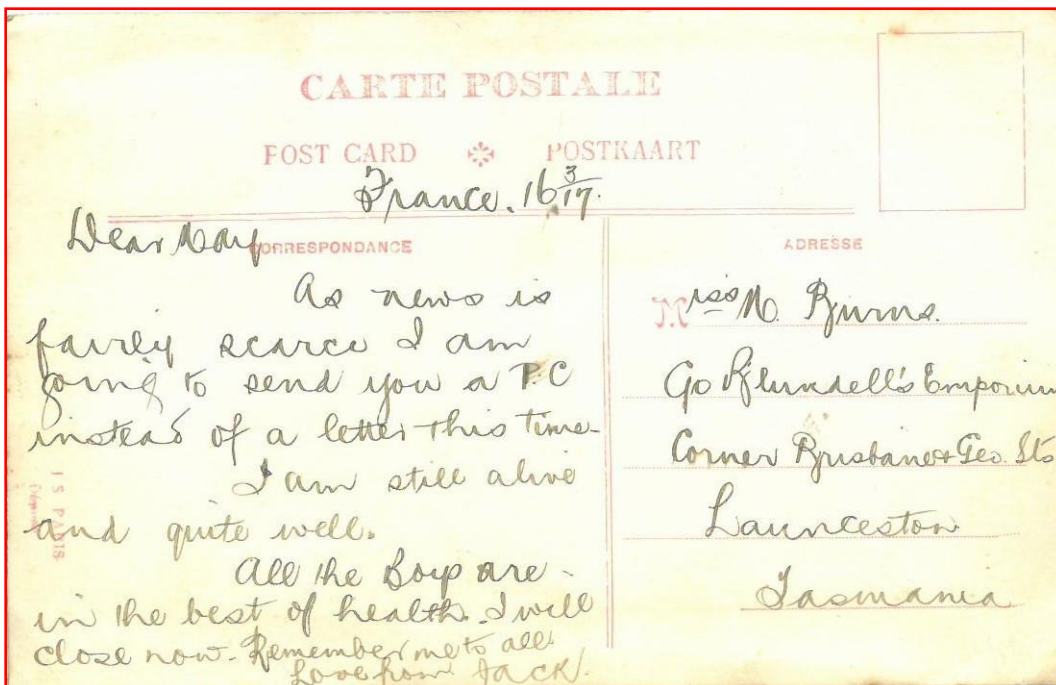 CARTE POSTALE
POST CARD POSTKAART
France. 16 3/17.
Dear May
CORRESPONDANCE
As news is
fairly scarce I am
going to send you a P.C
instead of a letter this time.
I am still alive
and quite well.
All the Boys are
in the best of health. I will
close now. Remember me to all
Love from JACK.
I S PARIS
ADRESSE
Miss M. Burns.
C/o Blundell's Emporium
Corner Brisbane & Geo. Sts
Launceston
Tasmania